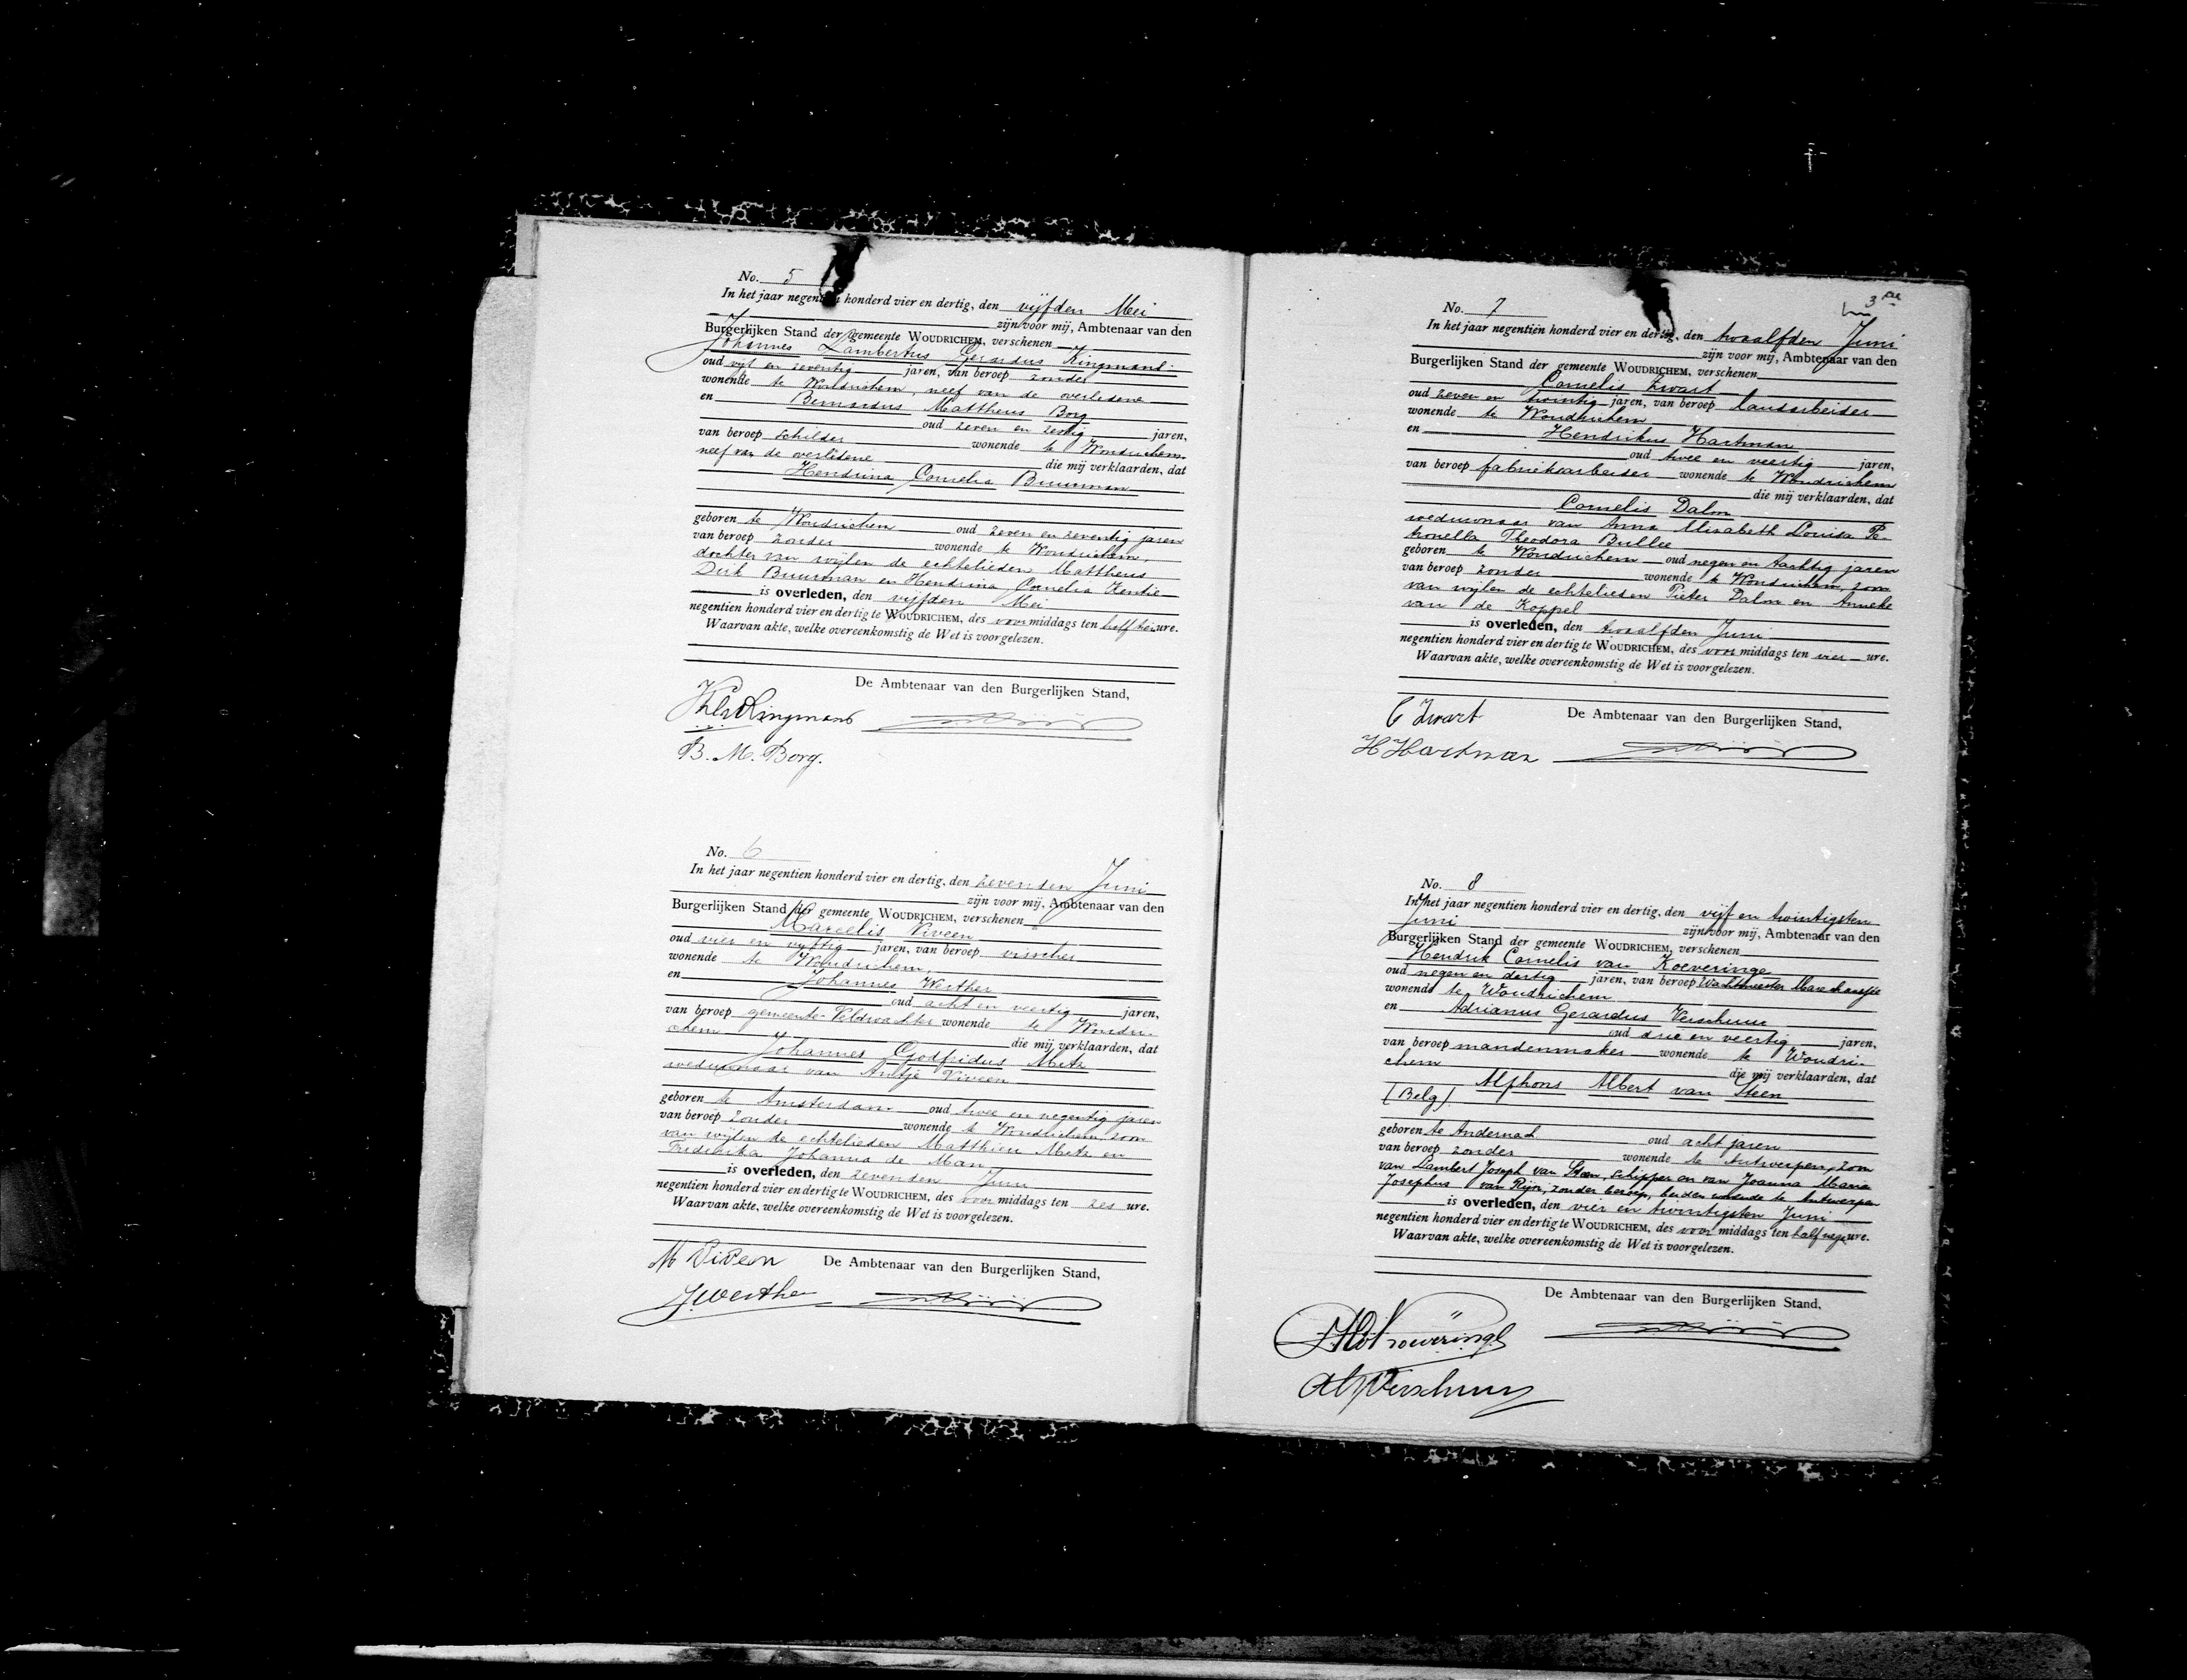 No. 5
In het jaar negentien honderd vier en dertig, den vijfden Mei
zijn voor mij, Ambtenaar van den
Burgerlijken Stand der gemeente WOUDRICHEM, verschenen
Johannes Lambertus Gerardus Kingmans
oud vijf en zeventig jaren, van beroep zonder
wonende te Woudrichem, neef van de overledene
en Bernardus Mattheus Borg
oud zeven en zestig jaren,
van beroep schilder wonende te Woudrichem
neef van de overledene die mij verklaarden, dat
Hendrina Cornelia Buurman
geboren te Woudrichem oud zeven en zeventig jaren
van beroep zonder wonende te Woudrichem,
dochter van wijlen de echtelieden Mattheus
Dirk Buurman en Hendrina Cornelia
is overleden, den vijfden Mei
negentien honderd vier en dertig te WOUDRICHEM, des voormiddags ten half ure.
Waarvan akte, welke overeenkomstig de Wet is voorgelezen.
De Ambtenaar van den Burgerlijken Stand,
Kingmans
B. M. Borg.
No. 6
In het jaar negentien honderd vier en dertig, den zevenden Juni
zijn voor mij, Ambtenaar van den
Burgerlijken Stand der gemeente WOUDRICHEM, verschenen
Marcelis Viveen
oud vier en vijftig jaren, van beroep visscher
wonende te Woudrichem,
en Johannes Werther
oud acht en veertig jaren,
van beroep gemeente-Veldwachter wonende te Woudri-
chem die mij verklaarden, dat
Johannes Godfridus Metz
weduwnaar van Antje Viveen
geboren te Amsterdam oud twee en negentig jaren
van beroep zonder wonende te Woudrichem, zoon
van wijlen de echtelieden Matthieu Metz en
Frederika Johanna de Man
is overleden, den zevenden Juni
negentien honderd vier en dertig te WOUDRICHEM, des voormiddags ten zes ure.
Waarvan akte, welke overeenkomstig de Wet is voorgelezen.
De Ambtenaar van den Burgerlijken Stand,
M Viveen
J Werther
3de
No. 7
In het jaar negentien honderd vier en dertig, den twaalfden Juni
zijn voor mij, Ambtenaar van den
Burgerlijken Stand der gemeente WOUDRICHEM, verschenen
Cornelis Zwart
oud zeven en twintig jaren, van beroep landarbeider
wonende te Woudrichem
en Hendrikus Hartman
oud twee en veertig jaren,
van beroep fabrieksarbeider wonende te Woudrichem
die mij verklaarden, dat
Cornelis Dalm
weduwnaar van Anna Elisabeth Louisa Pe-
tronella Theodora Bullee
geboren te Woudrichem oud negen en tachtig jaren
van beroep zonder wonende te Woudrichem, zoon
van wijlen de echtelieden Pieter Dalm en Anneke
van de Koppel
is overleden, den twaalfden Juni
negentien honderd vier en dertig te WOUDRICHEM, des voormiddags ten vier ure.
Waarvan akte, welke overeenkomstig de Wet is voorgelezen.
De Ambtenaar van den Burgerlijken Stand,
C Zwart
H Hartman
No. 8
In het jaar negentien honderd vier en dertig, den vijf en twintigsten
Juni zijn voor mij, Ambtenaar van den
Burgerlijken Stand der gemeente WOUDRICHEM, verschenen
Hendrik Cornelis van Koeveringe
oud negen en dertig jaren, van beroep Wachtmeester Marechaussée
wonende te Woudrichem
en Adrianus Gerardus Verschuur
oud drie en veertig jaren,
van beroep mandenmaker wonende te Woudri-
chem die mij verklaarden, dat
Alphons Albert van Steen
(Belg)
geboren te Andernach oud acht jaren
van beroep zonder wonende te Antwerpen, zoon
van Lambert Joseph van Steen, schipper en van Joanna Maria
Josephus van Rijn, zonder beroep, beiden wonende te Antwerpen
is overleden, den vier en twintigsten Juni
negentien honderd vier en dertig te WOUDRICHEM, des voormiddags ten half negen ure.
Waarvan akte, welke overeenkomstig de Wet is voorgelezen.
De Ambtenaar van den Burgerlijken Stand,
Koeveringe
AG Verschuur